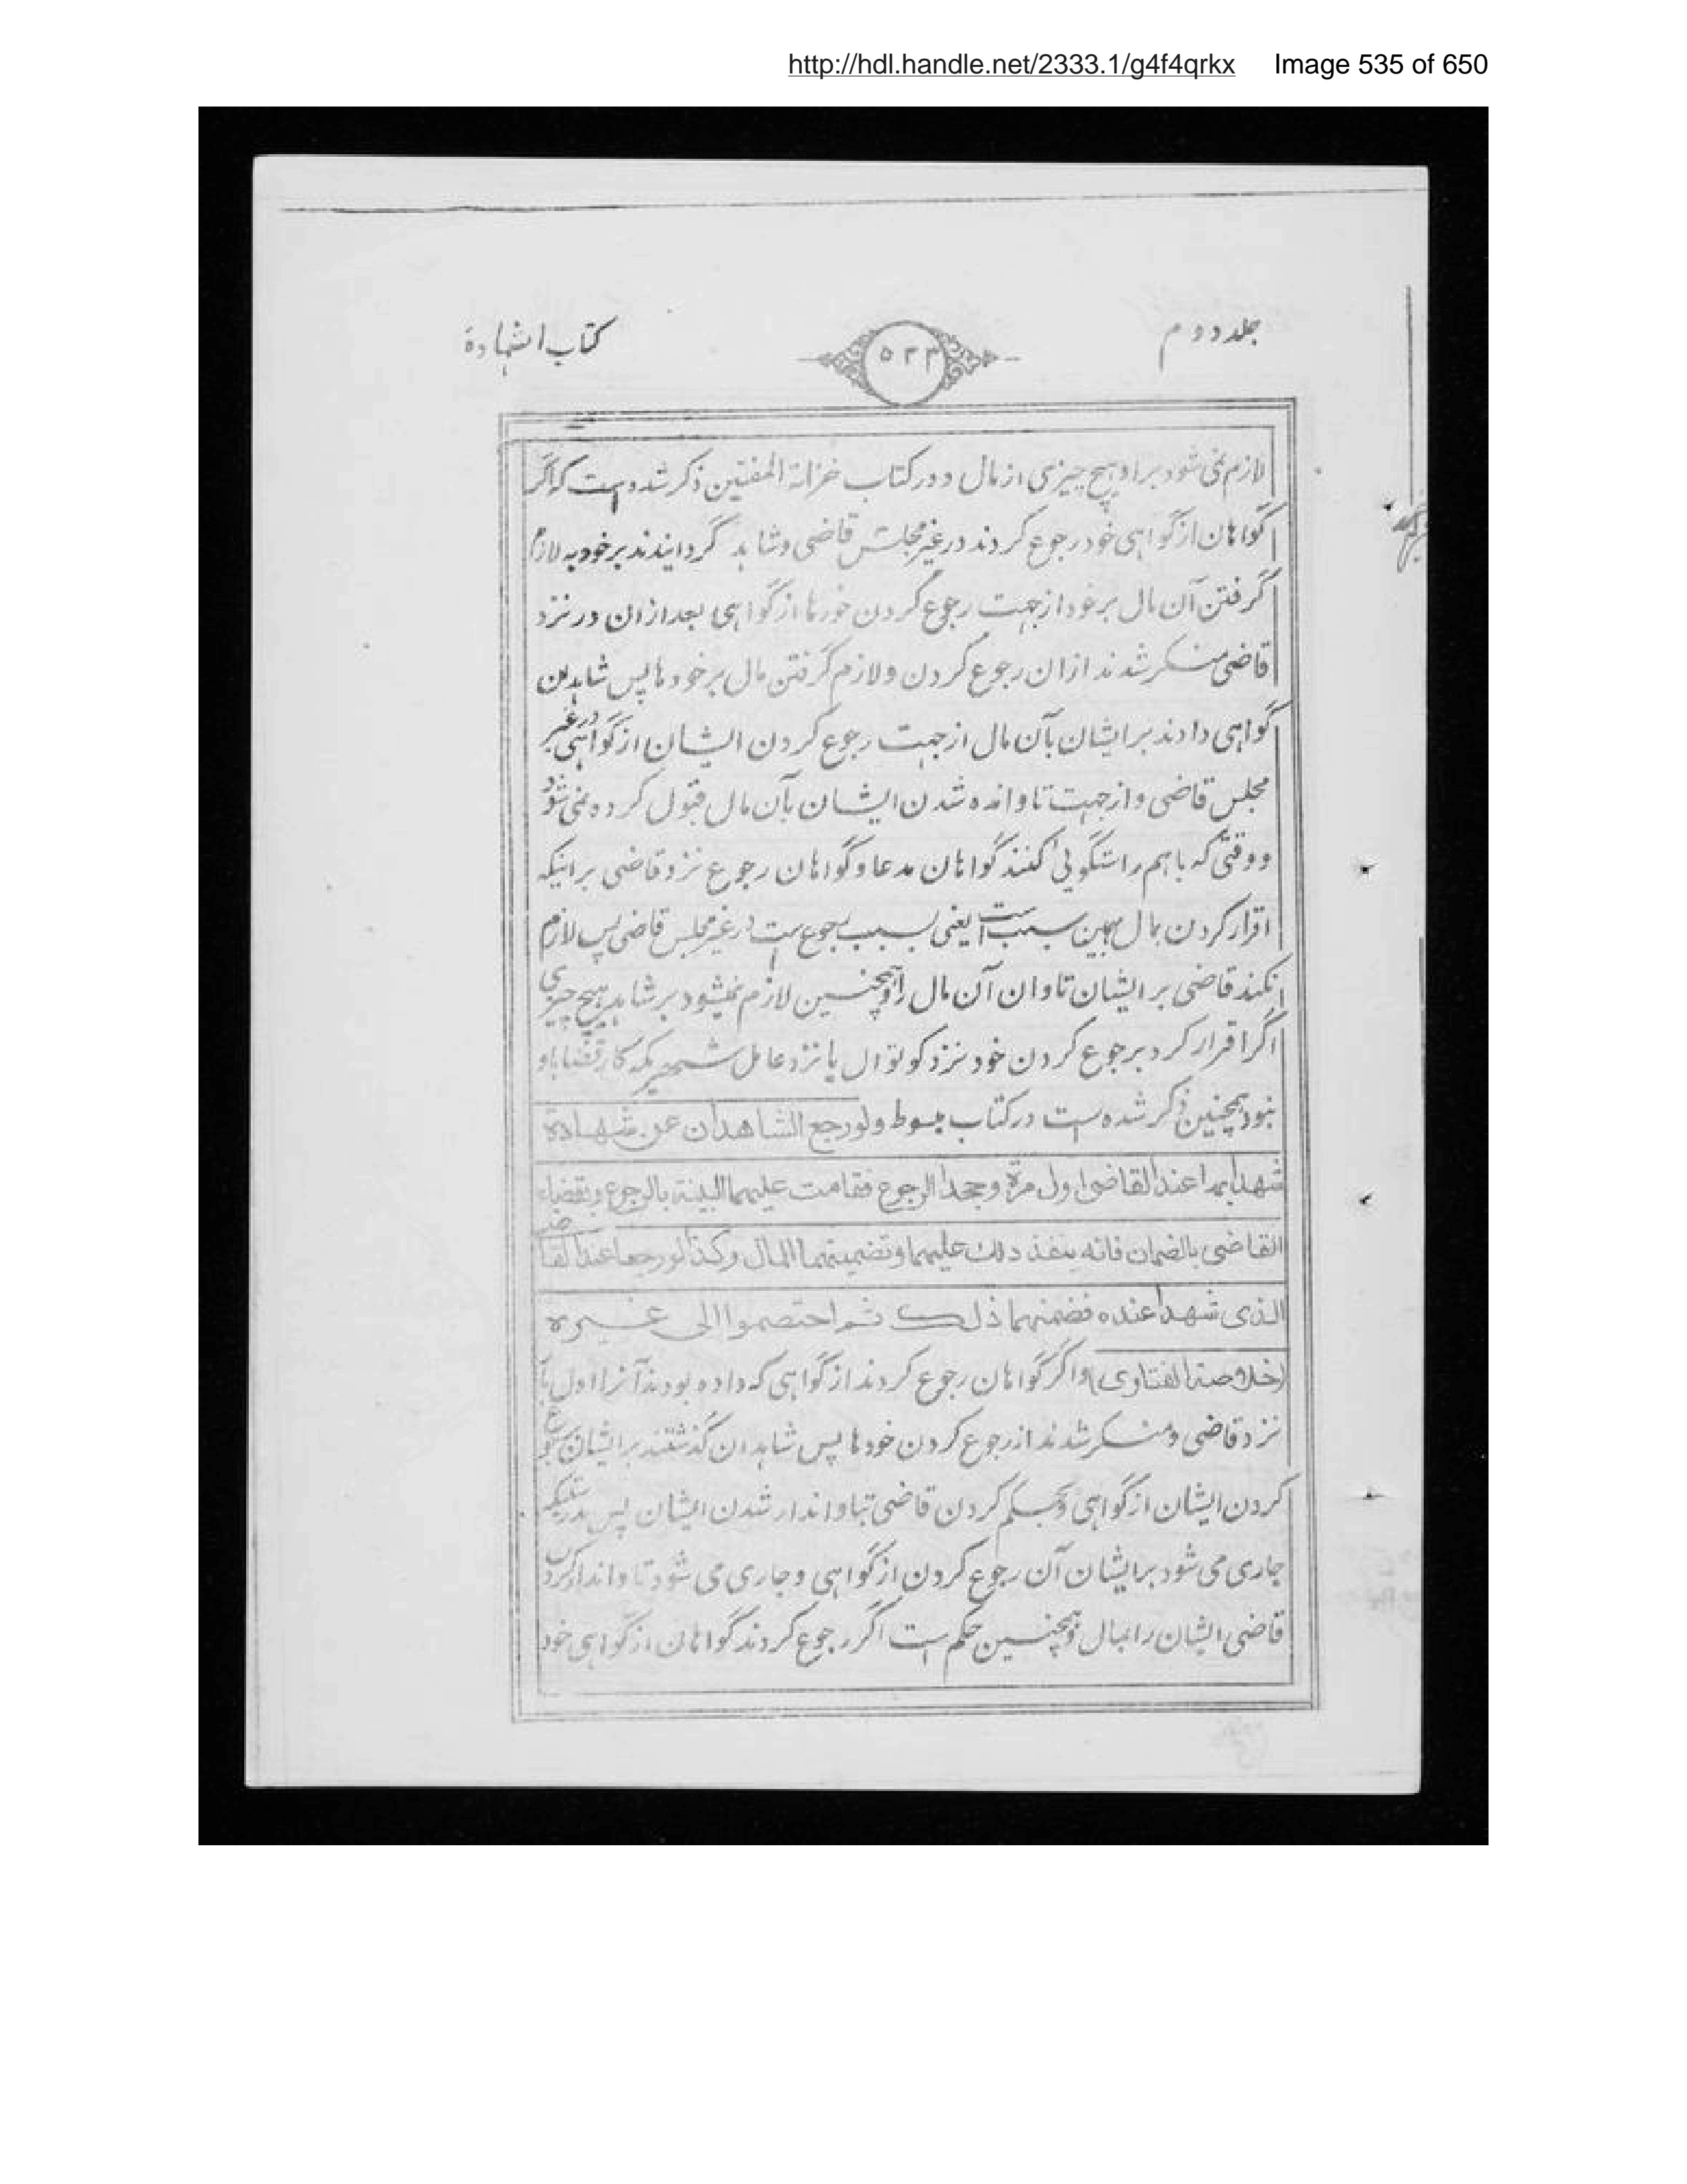 http://hdl.handle.net/2333.1/g4f4qrkx Image 535 of 650
جلد دوم
۵۳۳
کتاب الشهادة
لازم نمی شود بر او هیچ چیزی از مال و در کتاب خزانة المفتین ذکر شده است که اگر
گواهان از گواهی خود رجوع کردند در غیر مجلس قاضی و شاهد گردانیدند بر خود به لازم
گرفتن آن مال بر خود از جهت رجوع کردن خودها از گواهی بعد از ان در نزد
قاضی منکر شدند از ان رجوع کردن و لازم گرفتن مال بر خودها پس شاهدان
گواهی دادند بر ایشان بآن مال از جهت رجوع کردن ایشان از گواهی در غیر
مجلس قاضی و از جهت تاوانده شدن ایشان بآن مال قبول کرده نمی شود
و وقتی که باهم راستگویی کنند گواهان مدعا و گواهان رجوع نزد قاضی بر اینکه
اقرار کردن بمال بهمین سبب است یعنی بسبب رجوع است در غیر مجلس قاضی پس لازم
نکند قاضی بر ایشان تاوان آن مال را و همچنین لازم نمیشود بر شاهد هیچ چیزی
اگر اقرار کرد برجوع کردن خود نزد کوتوال یا نزد عامل شهریکه کار قضا باو
نبود همچنین ذکر شده است در کتاب مبسوط ولو رجع الشاهدان عن شهادة
شهدا بها عند القاضی اول مرة وجحدا الرجوع فقامت علیهما البینة بالرجوع وبقضاء
القاضی بالضمان فانه ینفذ ذلك علیهما وتضمینهما المال وکذا لو رجعا عند القاضی
الذی شهدا عنده فضمنهما ذلك ثم اختصموا الی غیره
(خلاصة الفتاوی) و اگر گواهان رجوع کردند از گواهی که داده بودند آنرا اول بار
نزد قاضی و منکر شدند از رجوع کردن خودها پس شاهدان گذشتند بر ایشان برجوع
کردن ایشان از گواهی و بحکم کردن قاضی بتاواندار شدن ایشان پس بدرستیکه
جاری می شود بر ایشان آن رجوع کردن از گواهی و جاری می شود تاواندار کردن
قاضی ایشان را بمال و همچنین حکم است اگر رجوع کردند گواهان از گواهی خود